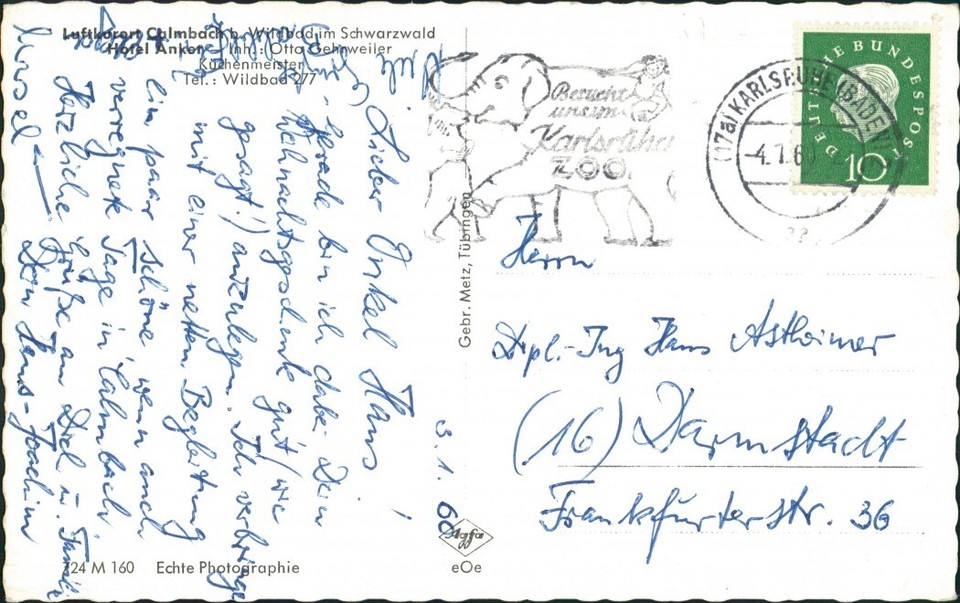 Luftkurort Calmbach b. Wildbad im Schwarzwald
Hotel Anker Inh.: Otto Gehrweiler
Küchenmeister
Tel.: Wildbad 277
3.1.60
Lieber Onkel Hans!
Gerade bin ich dabei Dein
Weihnachtsgeschenk gut (wie
gesagt!) anzulegen. Ich verbringe
mit einer netten Begleitung
ein paar schöne wenn auch
verregnete Tage in Calmbach
Herzliche Grüße an Dich u. Familie
Dein Hans-Joachim
Ursel
Gebr. Metz, Tübingen
Besucht
uns im
Karlsruher
ZOO
(17a) KARLSRUHE (BADEN)
-4.1.60
DEUTSCHE BUNDESPOST
10
Herrn
Dipl.-Ing Hans Astheimer
(16) Darmstadt
Frankfurterstr. 36
724 M 160 Echte Photographie
Agfa
eOe